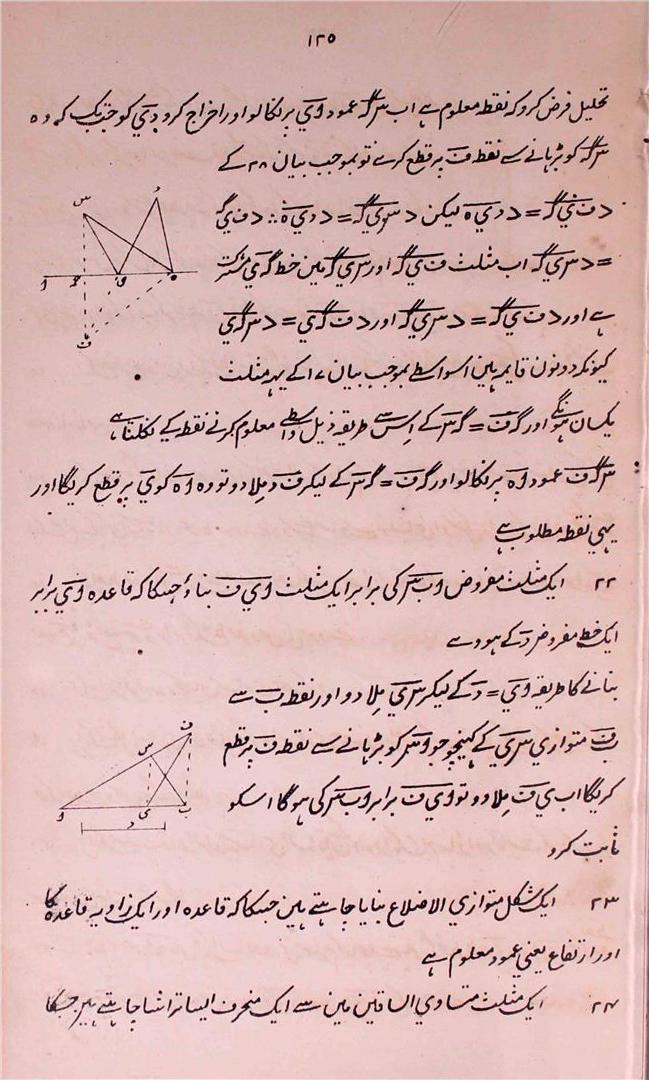 ۱۲۵
تحلیل فرض کروکہ نقطہ معلوم ہے اب سگ عمود اي پر نکالو اور اخراج کرو دي کو جبتک کہ وہ
سگ کو بڑہانے سے نقطہ ف پر قطع کرے تو بموجب بیان ۲۸ کے
> ف ي گ = > د ي ہ لیکن > س ي گ = > د ي ہ ∴ > ف ي گ
= > س ي گ اب مثلث ف ي گ اور س ي گ مین خط گ ي مشترک
ہے اور > ف ي گ = > س ي گ اور > ف گ ي = > س گ ي
کیونکہ دونون قایمہ ہین اسواسطے بموجب بیان ۱۷ کے یہہ مثلث
یکسان ہونگے اور گ ف = گ س کے اِس سے طریقہ ذیل واسطے معلوم کرنے نقطہ کے نکلتا ہے
س گ ف عمود اہ پر نکالو اور گ ف = گ س کے لیکر ف د مِلا دو تو وہ اہ کو ي پر قطع کریگا اور
یہي نقطہ مطلوب ہے
۲۲ ایک مثلث مفروض اب س کي برابر ایک مثلث اي ف بناؤ جسکا کہ قاعدہ اي برابر
ایک خط مفروض د کے ہووے
بنانے کا طریقہ اي = د کے لیکر س ي مِلا دو اور نقطہ ب سے
ب ف متوازي س ي کے کہینچو جو اس کو بڑہانے سے نقطہ ف پر قطع
کریگا اب ي ف مِلا دو تو اي ف برابر اب س کي ہوگا اسکو
ثابت کرو
۲۳ ایک شکل متوازي الاضلاع بنایا چاہتے ہین جسکا کہ قاعدہ اور ایک زاویہ قاعدہ کا
اور ارتفاع یعني عمود معلوم ہے
۲۴ ایک مثلث متساوي الساقین مین سے ایک منحرف ایسا تراشا چاہتے ہین جسکا
س
د
ا
گ
ي
ہ
ف
ف
س
ا
ي
ب
د